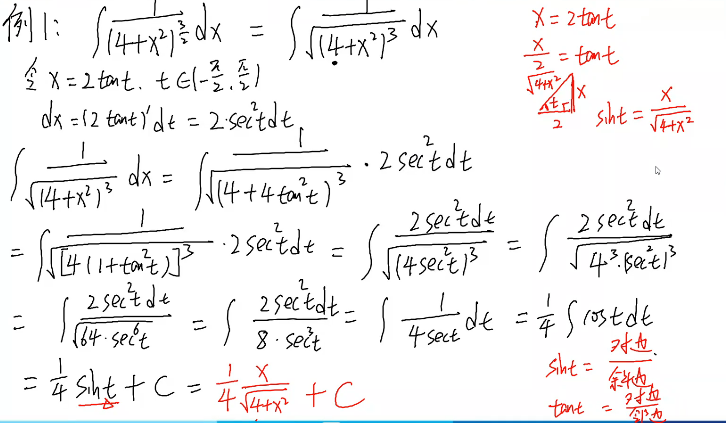 例1: ∫ 1/(4+x²)^(3/2) dx = ∫ 1/√((4+x²)³) dx
令 x = 2tant. t∈(-π/2, π/2)
dx = (2tant)'dt = 2·sec²t dt
∫ 1/√((4+x²)³) dx = ∫ 1/√((4+4tan²t)³) · 2sec²t dt
= ∫ 1/√([4(1+tan²t)]³) · 2sec²t dt = ∫ 2sec²t dt/√((4sec²t)³) = ∫ 2sec²t dt/√(4³·(sec²t)³)
= ∫ 2sec²t dt/√(64·sec⁶t) = ∫ 2sec²t dt/(8·sec³t) = ∫ 1/(4sect) dt = 1/4 ∫ cost dt
= 1/4 sint + C = 1/4 x/√(4+x²) + C
x = 2tant
x/2 = tant
√(4+x²) t x 2
sint = x/√(4+x²)
sint = 对边/斜边
tant = 对边/邻边